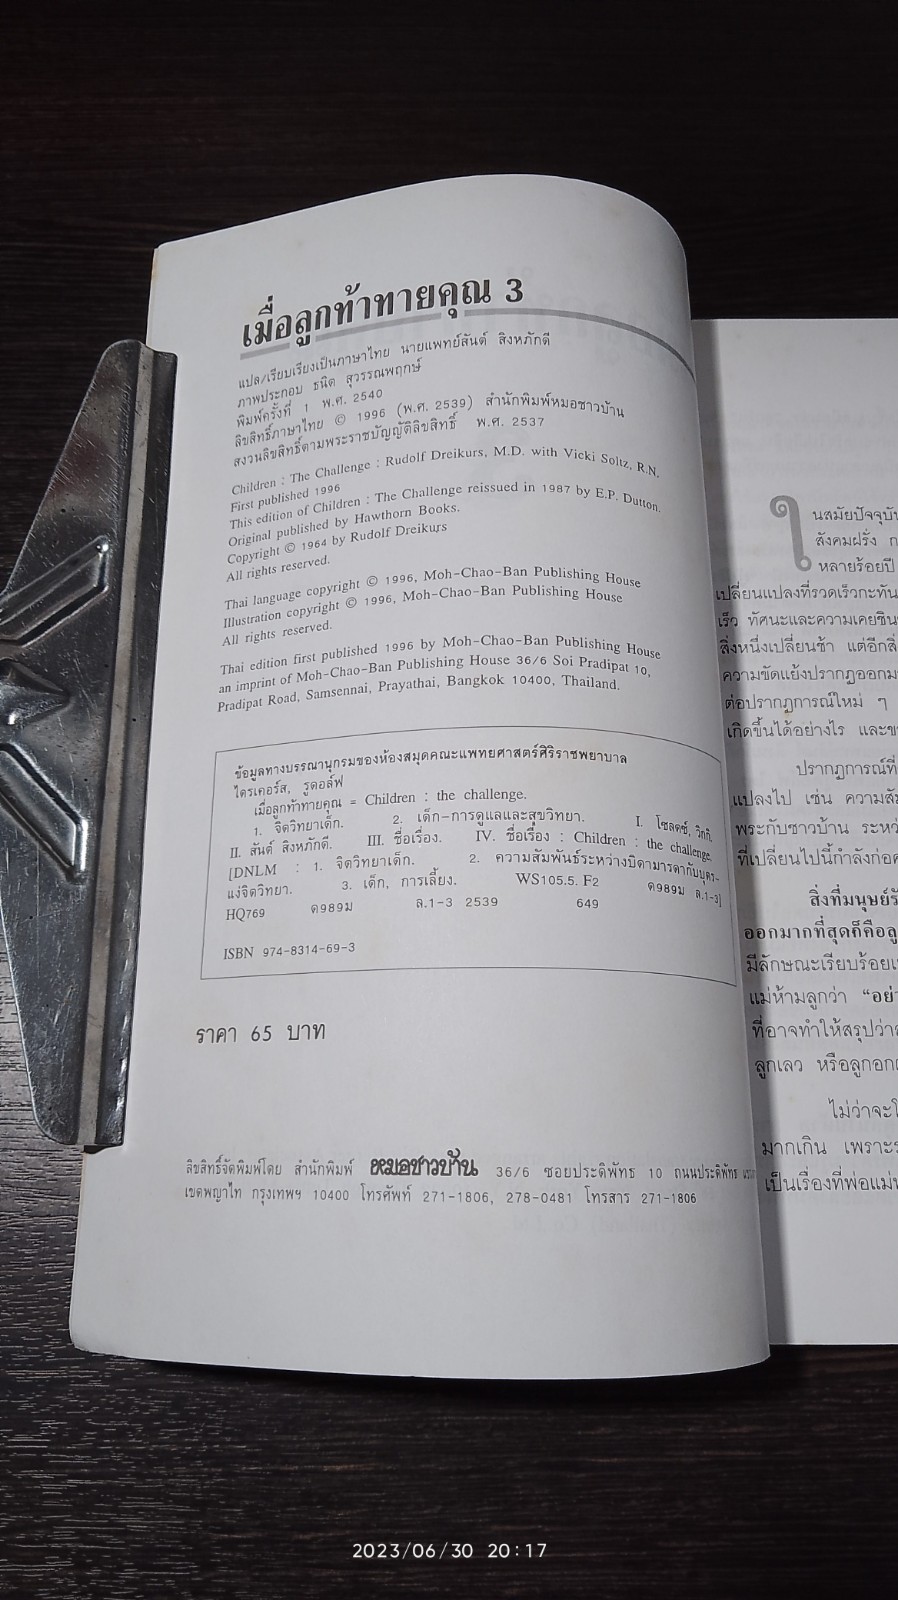 เมื่อลูกท้าทายคุณ 3
แปล/เรียบเรียงเป็นภาษาไทย นายแพทย์สันต์ สิงหภักดี
ภาพประกอบ ธนิต สุวรรณพฤกษ์
พิมพ์ครั้งที่ 1 พ.ศ. 2540
ลิขสิทธิ์ภาษาไทย © 1996 (พ.ศ. 2539) สำนักพิมพ์หมอชาวบ้าน
สงวนลิขสิทธิ์ตามพระราชบัญญัติลิขสิทธิ์ พ.ศ. 2537
Children : The Challenge : Rudolf Dreikurs, M.D. with Vicki Soltz, R.N.
First published 1996
This edition of Children : The Challenge reissued in 1987 by E.P. Dutton.
Original published by Hawthorn Books.
Copyright © 1964 by Rudolf Dreikurs
All rights reserved.
Thai language copyright © 1996, Moh-Chao-Ban Publishing House
Illustration copyright © 1996, Moh-Chao-Ban Publishing House
All rights reserved.
Thai edition first published 1996 by Moh-Chao-Ban Publishing House
an imprint of Moh-Chao-Ban Publishing House 36/6 Soi Pradipat 10,
Pradipat Road, Samsennai, Prayathai, Bangkok 10400, Thailand.
ข้อมูลทางบรรณานุกรมของห้องสมุดคณะแพทยศาสตร์ศิริราชพยาบาล
ไดรเคอร์ส, รูดอล์ฟ
เมื่อลูกท้าทายคุณ = Children : the challenge.
1. จิตวิทยาเด็ก. 2. เด็ก-การดูแลและสุขวิทยา. I. โซลตซ์, วิกกิ.
II. สันต์ สิงหภักดี. III. ชื่อเรื่อง. IV. ชื่อเรื่อง : Children : the challenge.
[DNLM : 1. จิตวิทยาเด็ก. 2. ความสัมพันธ์ระหว่างบิดามารดากับบุตร-
แง่จิตวิทยา. 3. เด็ก, การเลี้ยง. WS105.5. F2 ด989ม ล.1-3]
HQ769 ด989ม ล.1-3 2539 649
ISBN 974-8314-69-3
ราคา 65 บาท
ลิขสิทธิ์จัดพิมพ์โดย สำนักพิมพ์ หมอชาวบ้าน 36/6 ซอยประดิพัทธ 10 ถนนประดิพัทธ
เขตพญาไท กรุงเทพฯ 10400 โทรศัพท์ 271-1806, 278-0481 โทรสาร 271-1806
ในสมัยปัจจุบัน
สังคมฝรั่ง
หลายร้อยปี
เปลี่ยนแปลงที่รวดเร็วกะทัน
เร็ว ทัศนะและความเคยชิน
สิ่งหนึ่งเปลี่ยนช้า แต่อีกสิ่
ความขัดแย้งปรากฏออกม
ต่อปรากฏการณ์ใหม่ ๆ
เกิดขึ้นได้อย่างไร และข
ปรากฏการณ์ที่
แปลงไป เช่น ความสัม
พระกับชาวบ้าน ระหว่
ที่เปลี่ยนไปนี้กำลังก่อ
สิ่งที่มนุษย์รั
ออกมากที่สุดก็คือลู
มีลักษณะเรียบร้อย
แม่ห้ามลูกว่า “อย่
ที่อาจทำให้สรุปว่า
ลูกเลว หรือลูกอก
ไม่ว่าจะ
มากเกิน เพราะ
เป็นเรื่องที่พ่อแม่
2023/06/30 20:17